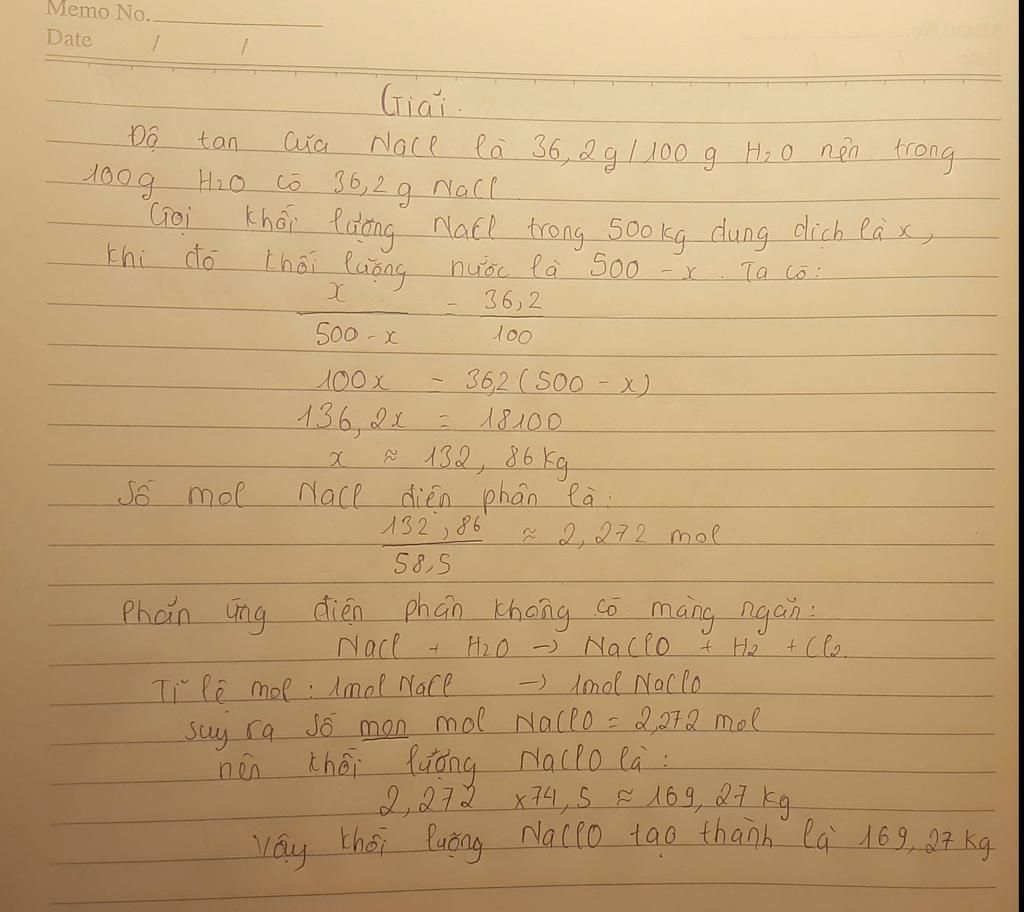 Memo No.
Date / /
Giải.
Độ tan của NaCl là 36,2g/100 g H2O nên trong
100g H2O có 36,2g NaCl
Gọi khối lượng NaCl trong 500kg dung dịch là x,
khi đó khối lượng nước là 500 - x. Ta có:
x / 500 - x = 36,2 / 100
100x = 36,2(500 - x)
136,2x = 18100
x ≈ 132,86kg
Số mol NaCl điện phân là:
132,86 / 58,5 ≈ 2,272 mol
Phản ứng điện phân không có màng ngăn:
NaCl + H2O → NaClO + H2 + Cl2.
Tỉ lệ mol: 1mol NaCl → 1mol NaClO
suy ra số mon mol NaClO = 2,272 mol
nên khối lượng NaClO là:
2,272 x74,5 ≈ 169,27 kg
Vậy khối lượng NaClO tạo thành là 169,27 kg